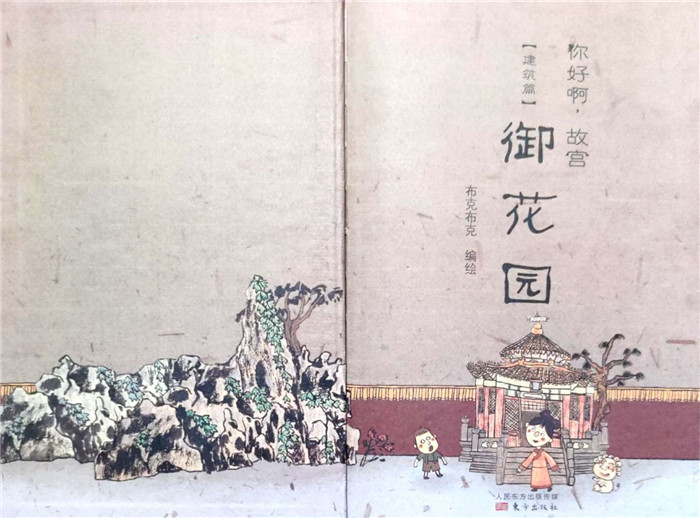 你好啊，故宫
【建筑篇】
御花园
布克布克 编绘
人民东方出版传媒
东方出版社